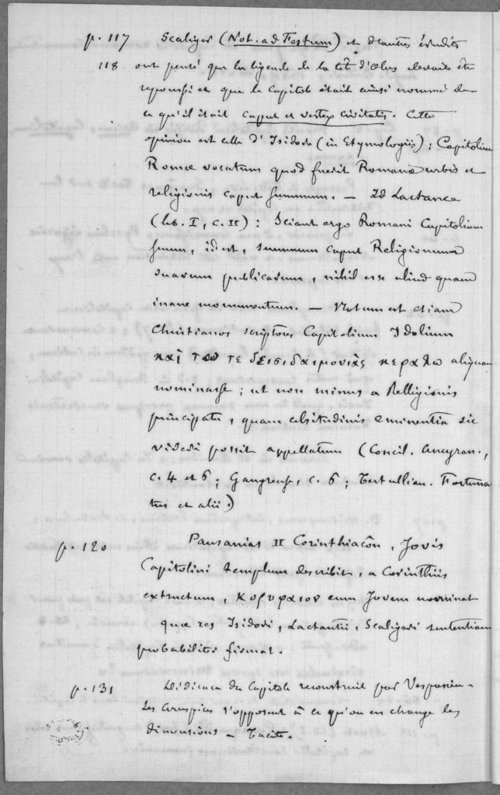 p. 117 Scaliger (Not. ad Festum) et d'autres érudits
118 ont pensé que la légende de la tête d'Olus devait être
repoussée et que le Capitole était ainsi nommé de
ce qu'il était caput et vertex civitatis. Cette
opinion est celle d'Isidore (in Etymologiis): Capitolium
Romæ vocatum quod fuerit Romanæ urbis et
religionis caput summum. — Id Lactance
(lib. I, c. II): Sciant ergo Romani Capitolium
suum, id est, summum caput Religionum
suarum publicarum, nihil esse aliud quam
inane monumentum. — Notum est etiam
Christianos scriptores Capitolium Idolium
καὶ τῶν τε δεισιδαιμονίας aliquando
nominasse; ut non minus a Relligionis
principatu, quam altitudinis eminentia sic
videri possit appellatum (Concil. Ancyran.,
c. 4 et 6; Gangrense, c. 6; Tertullian. Fortuna
tus et alii.)
p. 120 Pausanias II Corinthiacôn, Jovis
Capitolini templum describit, a Corinthiis
extructum, κορυφαιον eum Jovem nominat
quæ res Isidori, Lactantii, Scaligeri sententiam
probabiliter firmat.
p. 131 Dédicace du Capitole reconstruit par Vespasien —
Les aruspices s'opposent à ce qu'on en change les
dimensions — Tacite.